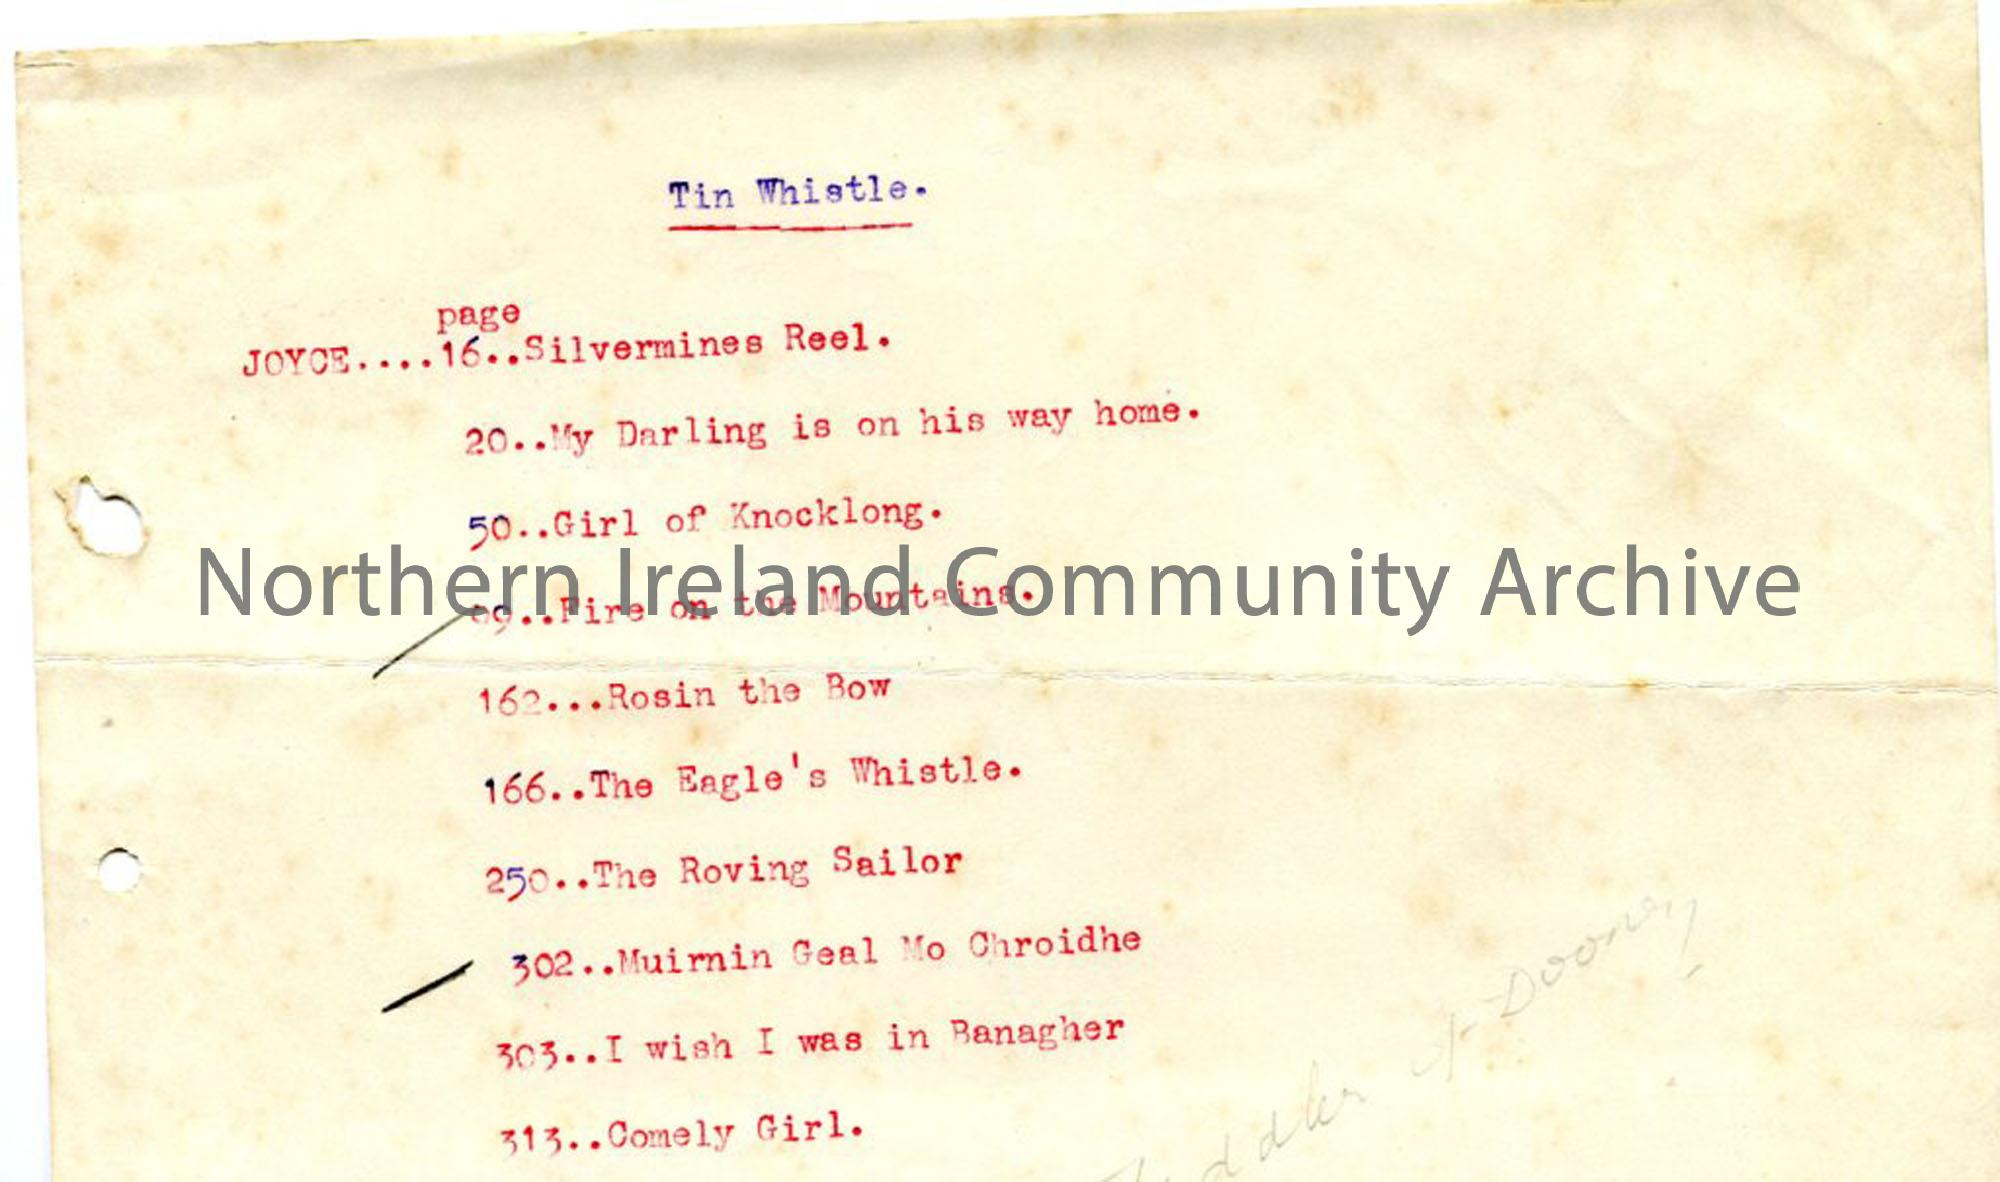 Tin Whistle.
page
JOYCE....16..Silvermines Reel.
20..My Darling is on his way home.
50..Girl of Knocklong.
Northern Ireland Community Archive
..Fire on the Mountains.
162...Rosin the Bow
166..The Eagle's Whistle.
250..The Roving Sailor
302..Muirnin Geal Mo Chroidhe
303..I wish I was in Banagher
313..Comely Girl.
Dooney